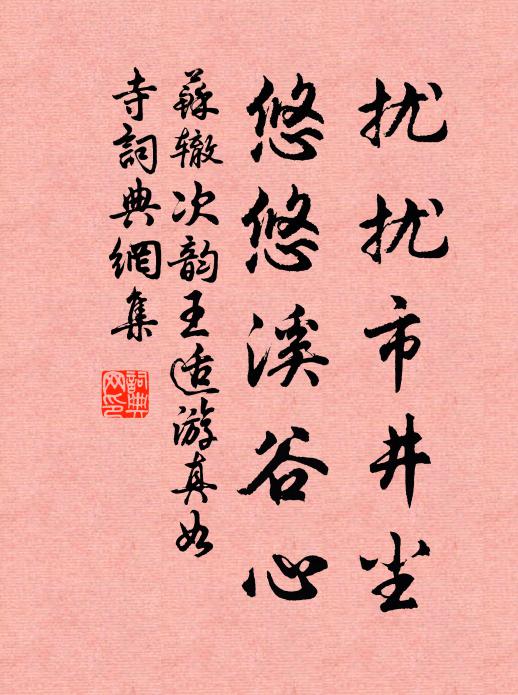 扰扰市井尘
悠悠溪谷心
蘇辙次韵王适游真如
寺詞典網集
詞典网印